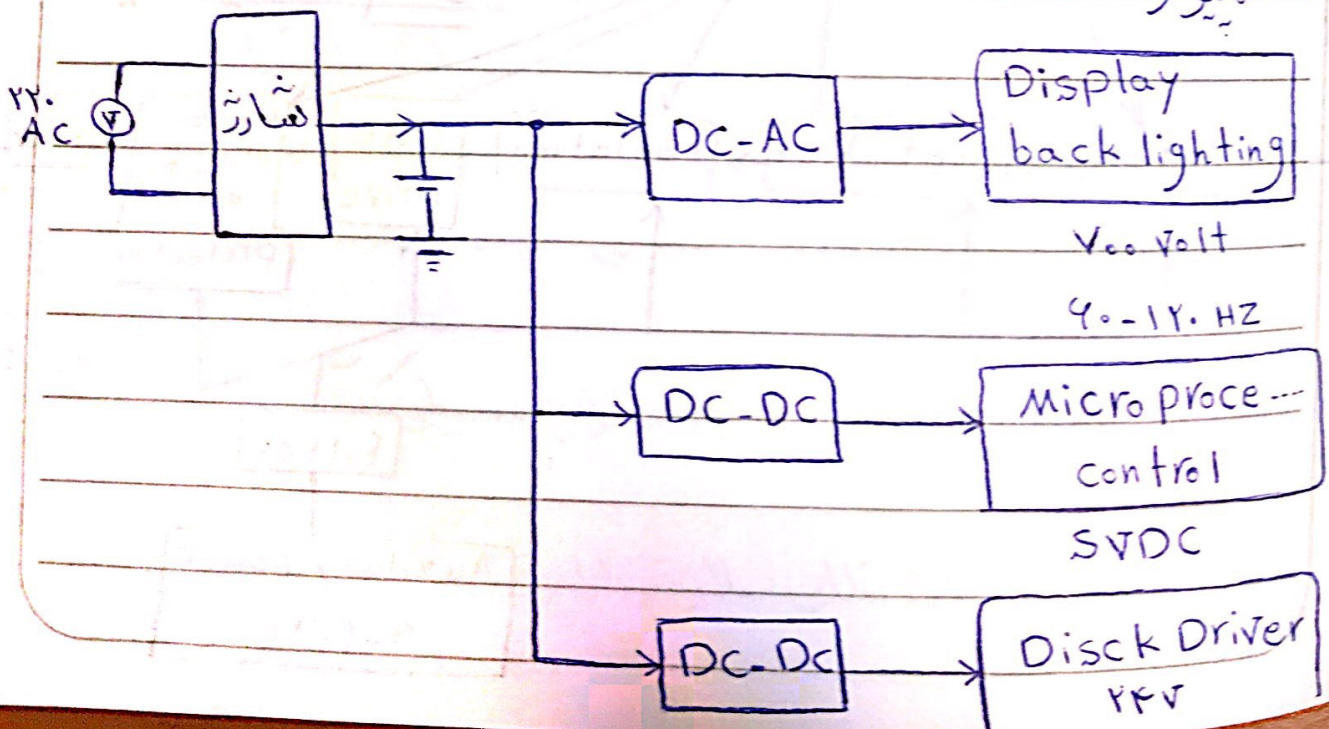 ۲۲۰
AC
V
شارژ
DC-AC
Display
back lighting
۷۰۰ Volt
۶۰-۱۲۰ HZ
DC-DC
Microproce---
control
5VDC
DC-DC
Disck Driver
۲۴V